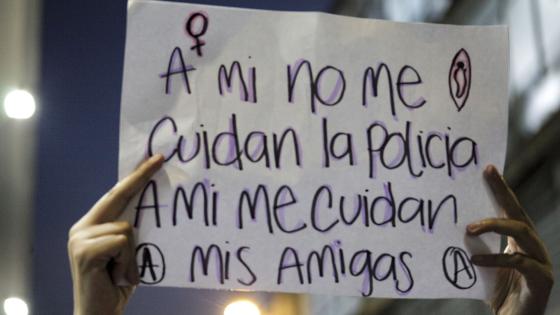 A mi no me
Cuidan la Policia
A mi me cuidan
A mis Amigas A